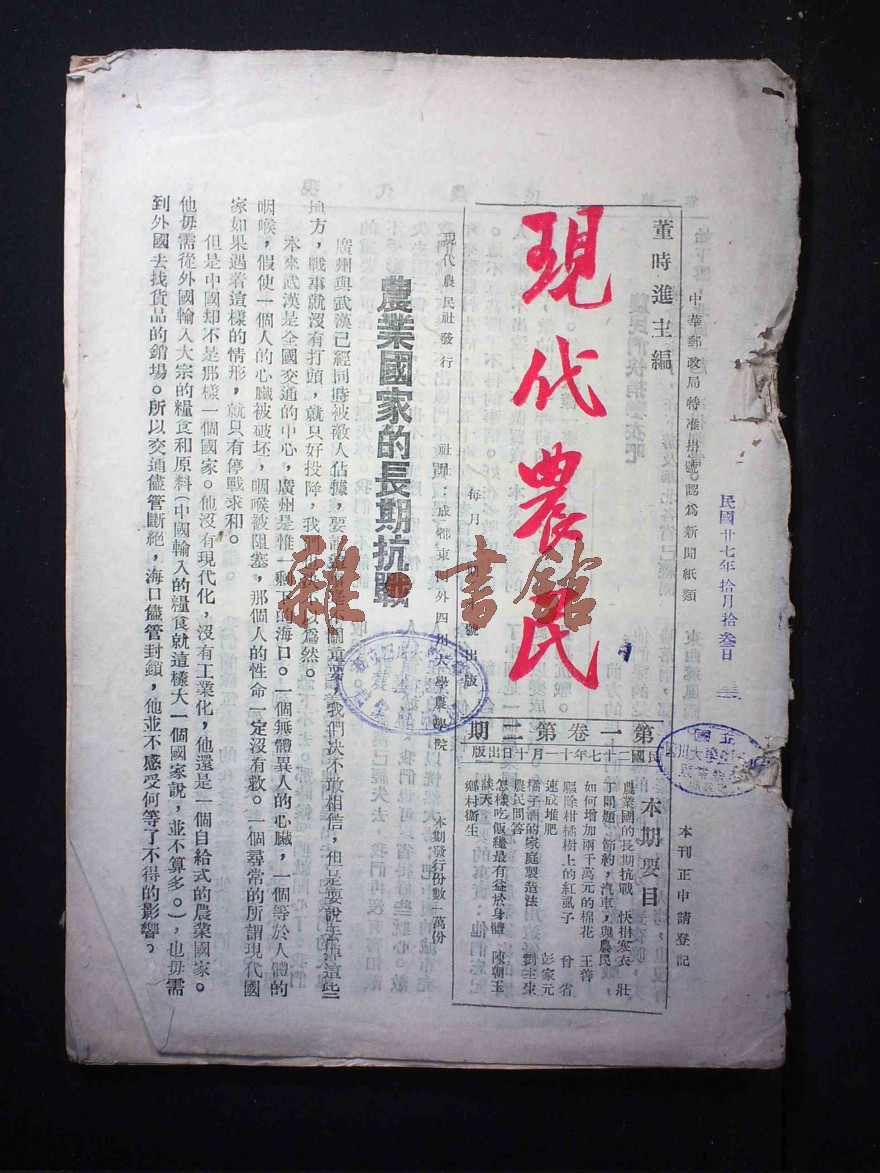 中華郵政局特准掛號認爲新聞紙類
本刊正申請登記
民國廿七年拾月拾叁日
董時進主編
現代農民
第一卷第二期
民國二十七年十一月十日出版
本期要目
農業國的長期抗戰
快捐寒衣
壯丁問題，節約，汽車，與農民
如何增加兩千萬元的棉花
王善
驅除柑橘樹上的紅虱子
曾省
速成堆肥
彭家元
橘子酒的家庭製造法
劉主生
農民問答
怎樣吃飯纔最有益於身體
陳朝玉
談天
鄉村衞生
現代農民社發行
社址：成都東
外四川大學農學院
每月
號出版
本期發行份數一萬份
農業國家的長期抗戰
廣州與武漢已經同時被敵人佔據，要說
我們决不敢相信，但是要說去掉這些
地方，戰事就沒有打頭，就只好投降，我們
以爲然。
本來武漢是全國交通的中心，廣州是惟一剩下的海口。一個無體異人的心臟，一個等於人體的
咽喉，假使一個人的心臟被破坏，咽喉被阻塞，那個人的性命一定沒有救。一個尋常的所謂現代國
家如果遇着這樣的情形，就只有停戰求和。
但是中國却不是那樣一個國家。他沒有現代化，沒有工業化，他還是一個自給式的農業國家。
他毋需從外國輸入大宗的糧食和原料（中國輸入的糧食就這樣大一個國家說，並不算多。），也毋需
到外國去找貨品的銷場。所以交通儘管斷絕，海口儘管封鎖，他並不感受何等了不得的影響。
雜·書館